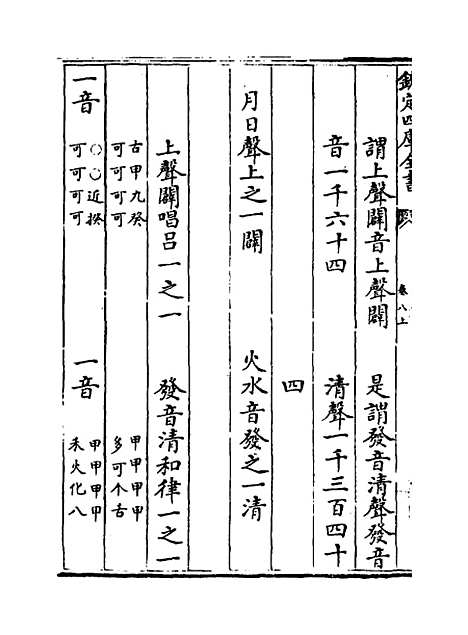 欽定四庫全書
卷八上
謂上聲闢音上聲闢
音一千六十四
月日聲上之一闢
上聲闢唱呂一之一
古甲九癸
可可可可
一音
○○近揆
可可可可
是謂發音清聲發音
清聲一千三百四十
四
火水音發之一清
發音清和律一之一
甲甲甲甲
多可个古
一音
甲甲甲甲
禾火化八